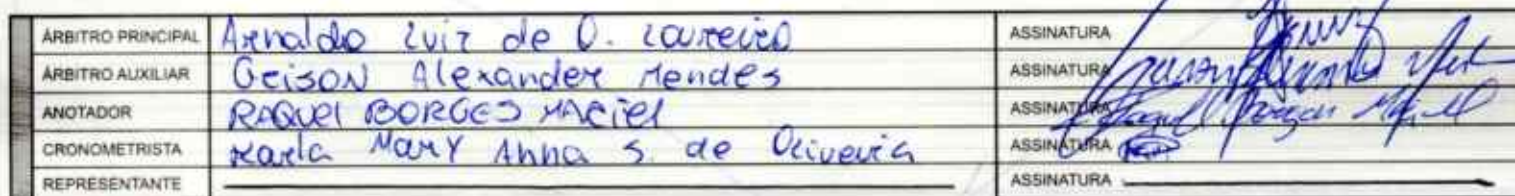 ÁRBITRO PRINCIPAL Arnaldo Luiz de O. Loureiro ASSINATURA
ÁRBITRO AUXILIAR Geison Alexander Mendes ASSINATURA
ANOTADOR RAQUEL BORGES MACIEL ASSINATURA
CRONOMETRISTA Karla Mary Anna S. de Oliveira ASSINATURA
REPRESENTANTE ASSINATURA